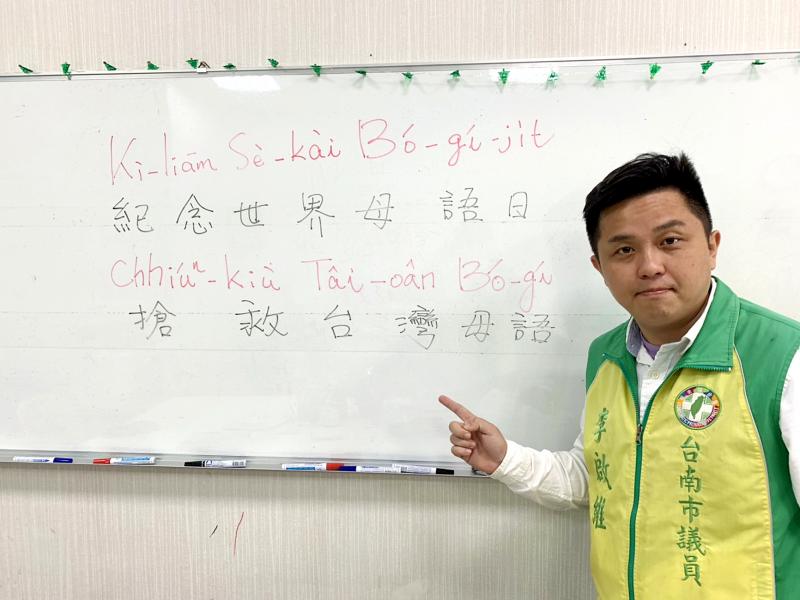 Kì-liām Sè-kài Bó-gí-ji̍t
紀念世界母語日
Chhiúⁿ-kiù Tâi-oân Bó-gí
搶救台灣母語
台南市議員
李啟維